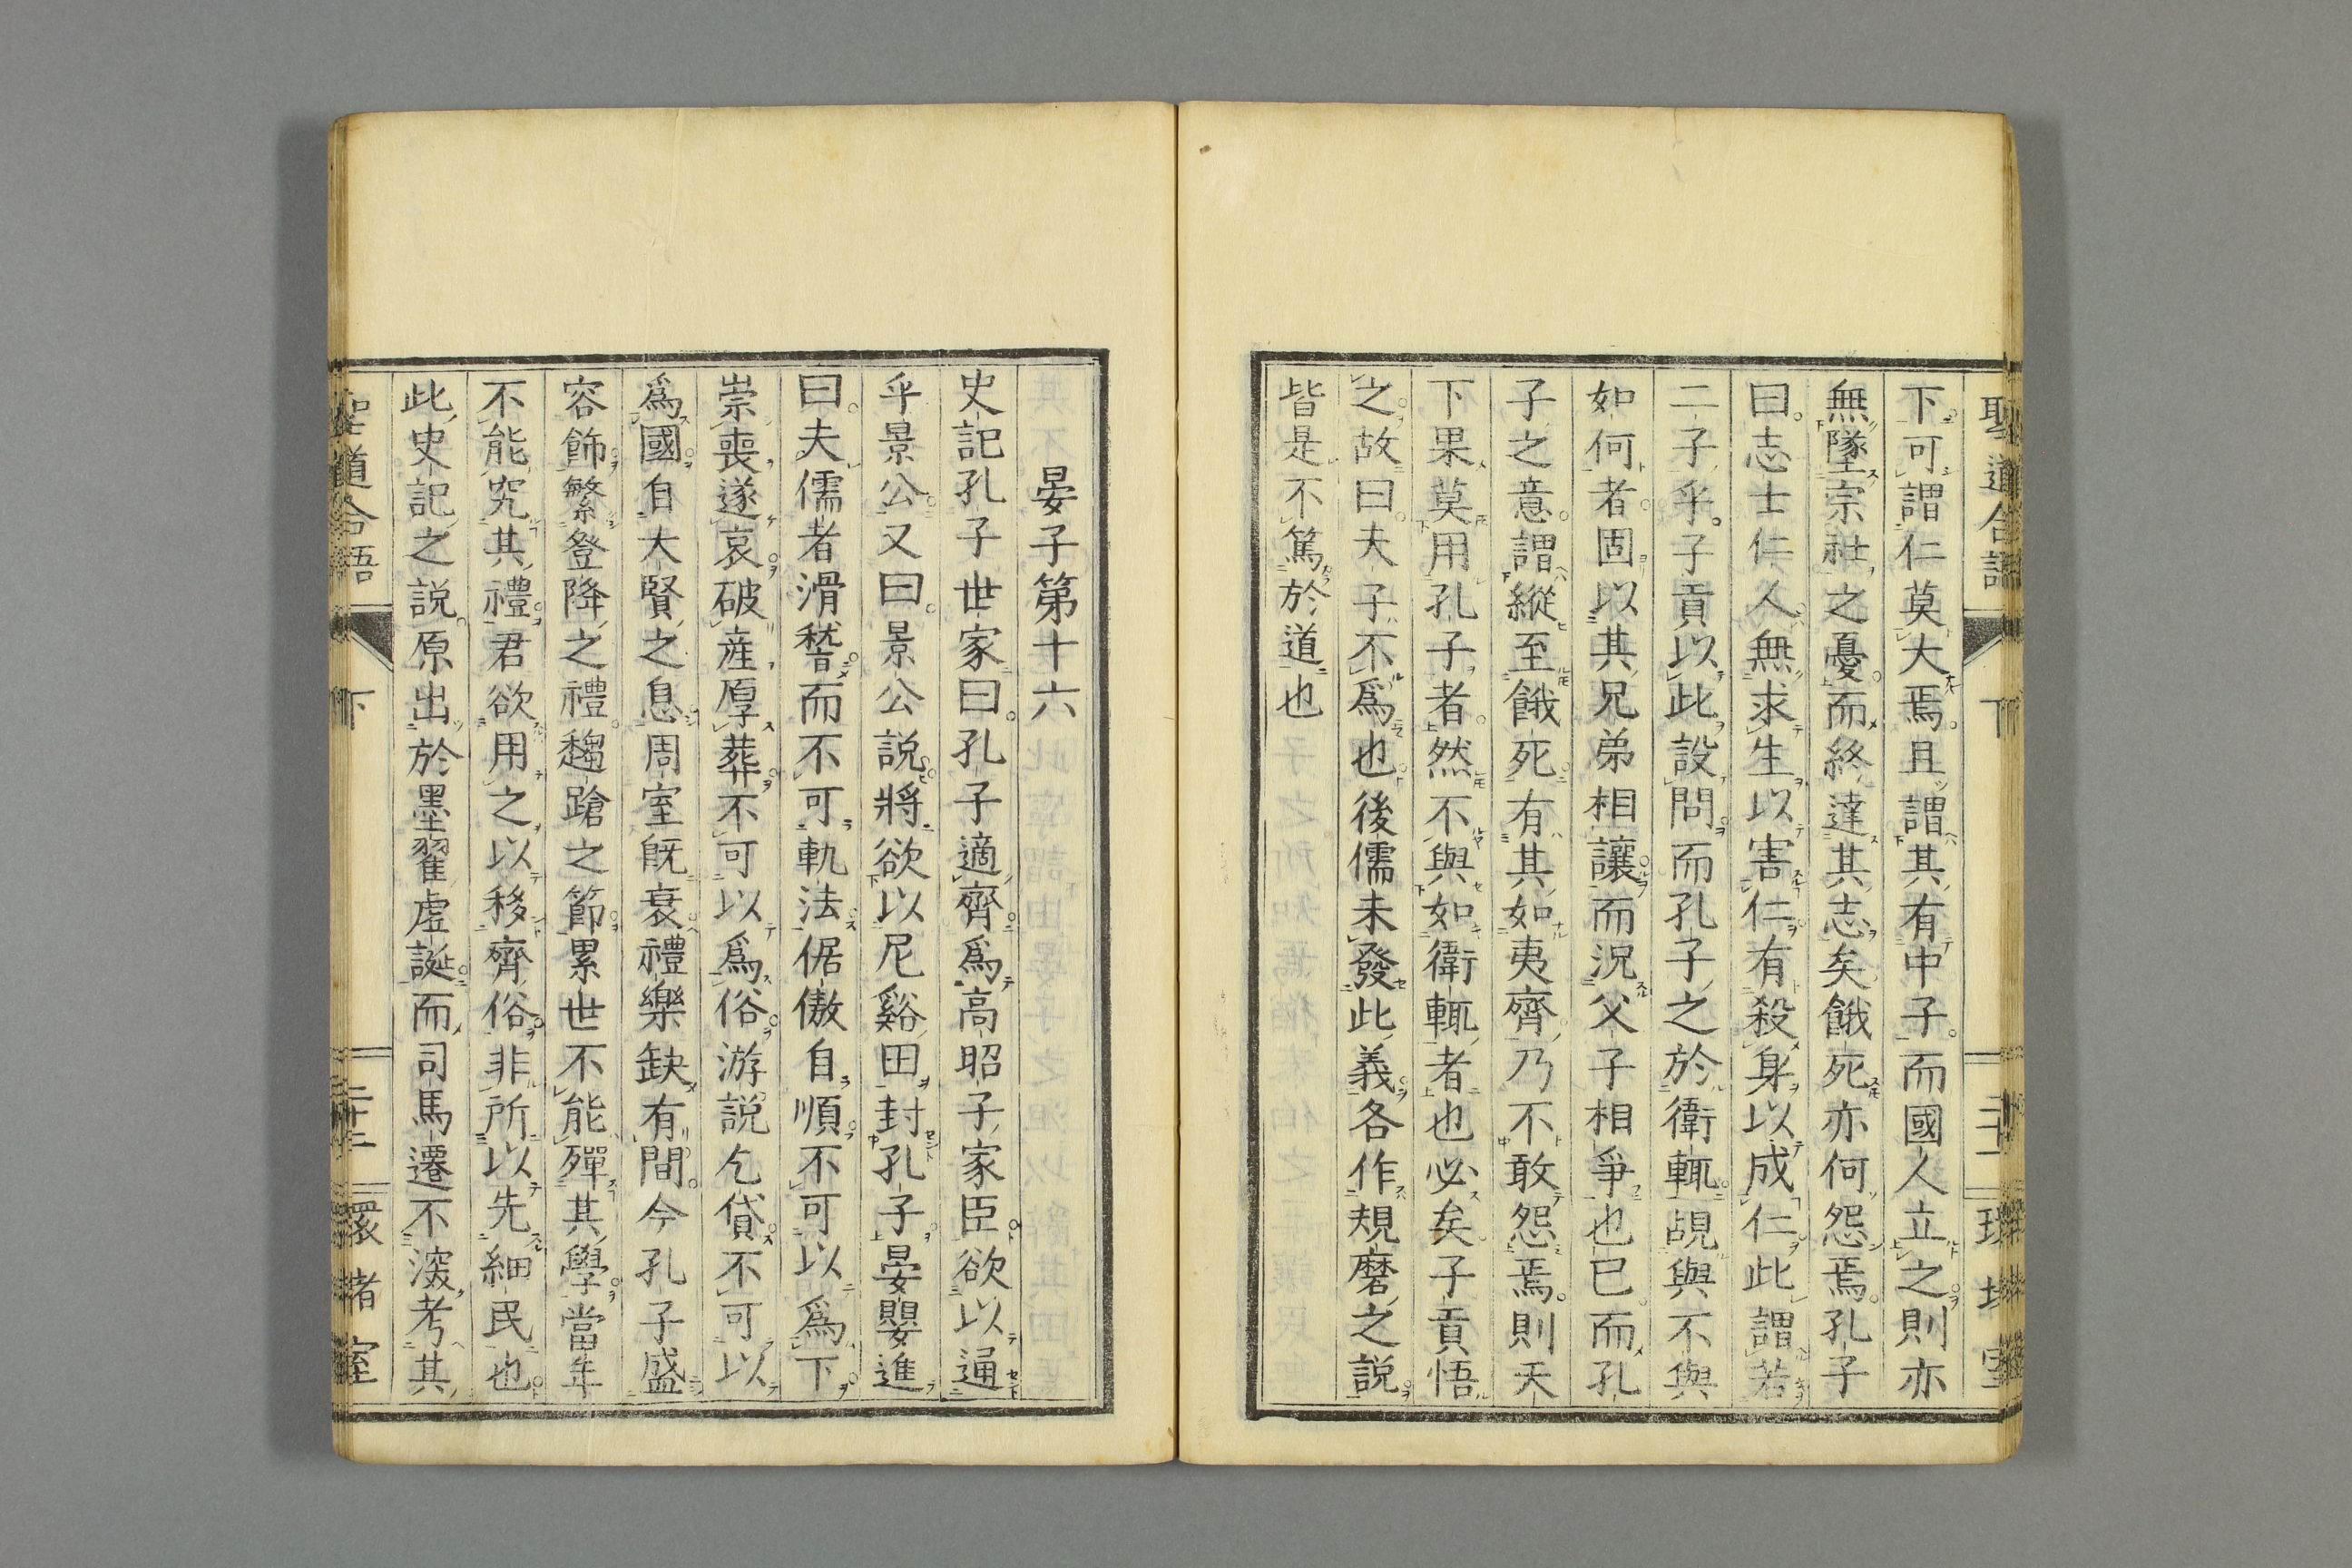 聖道合語 下 二十一 環堵室
下可謂仁莫大焉且謂其有中子而國人立之則亦
無墜宗社之憂而終達其志矣餓死亦何怨焉孔子
曰志士仁人無求生以害仁有殺身以成仁此謂若
二子乎子貢以此設問而孔子之於衛輒覘與不與
如何者固以其兄弟相讓而況父子相爭也已而孔
子之意謂縱至餓死有其如夷齊乃不敢怨焉則天
下果莫用孔子者然不與如衛輒者也必矣子貢悟
之故曰夫子不爲也後儒未發此義各作規磨之説
皆是不篤於道也
晏子第十六
史記孔子世家曰孔子適齊爲高昭子家臣欲以通
乎景公又曰景公説將欲以尼谿田封孔子晏嬰進
曰夫儒者滑稽而不可軌法倨傲自順不可以爲下
崇喪遂哀破産厚葬不可以爲俗游説乞貸不可以
爲國自大賢之息周室旣衰禮樂缺有間今孔子盛
容飾繁登降之禮趨蹌之節累世不能殫其學當年
不能究其禮君欲用之以移齊俗非所以先細民也
此史記之説原出於墨翟虚誕而司馬遷不深考其
聖道合語 下 二十二 環堵室